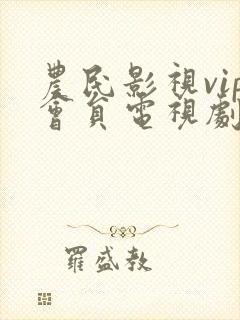 農民影視vip
會員電視劇
羅盛教